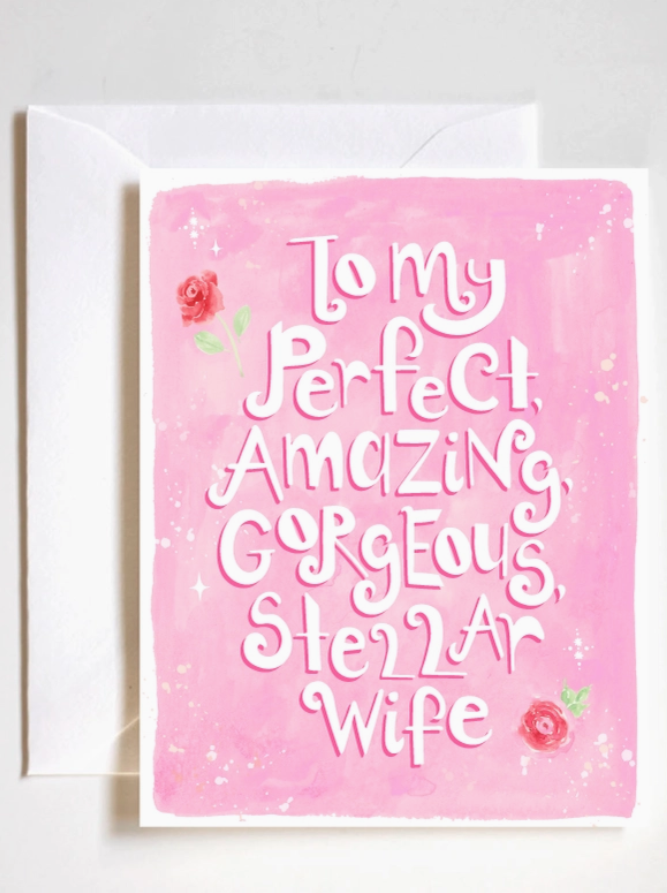 To my
Perfect,
Amazing,
Gorgeous,
Stellar
Wife